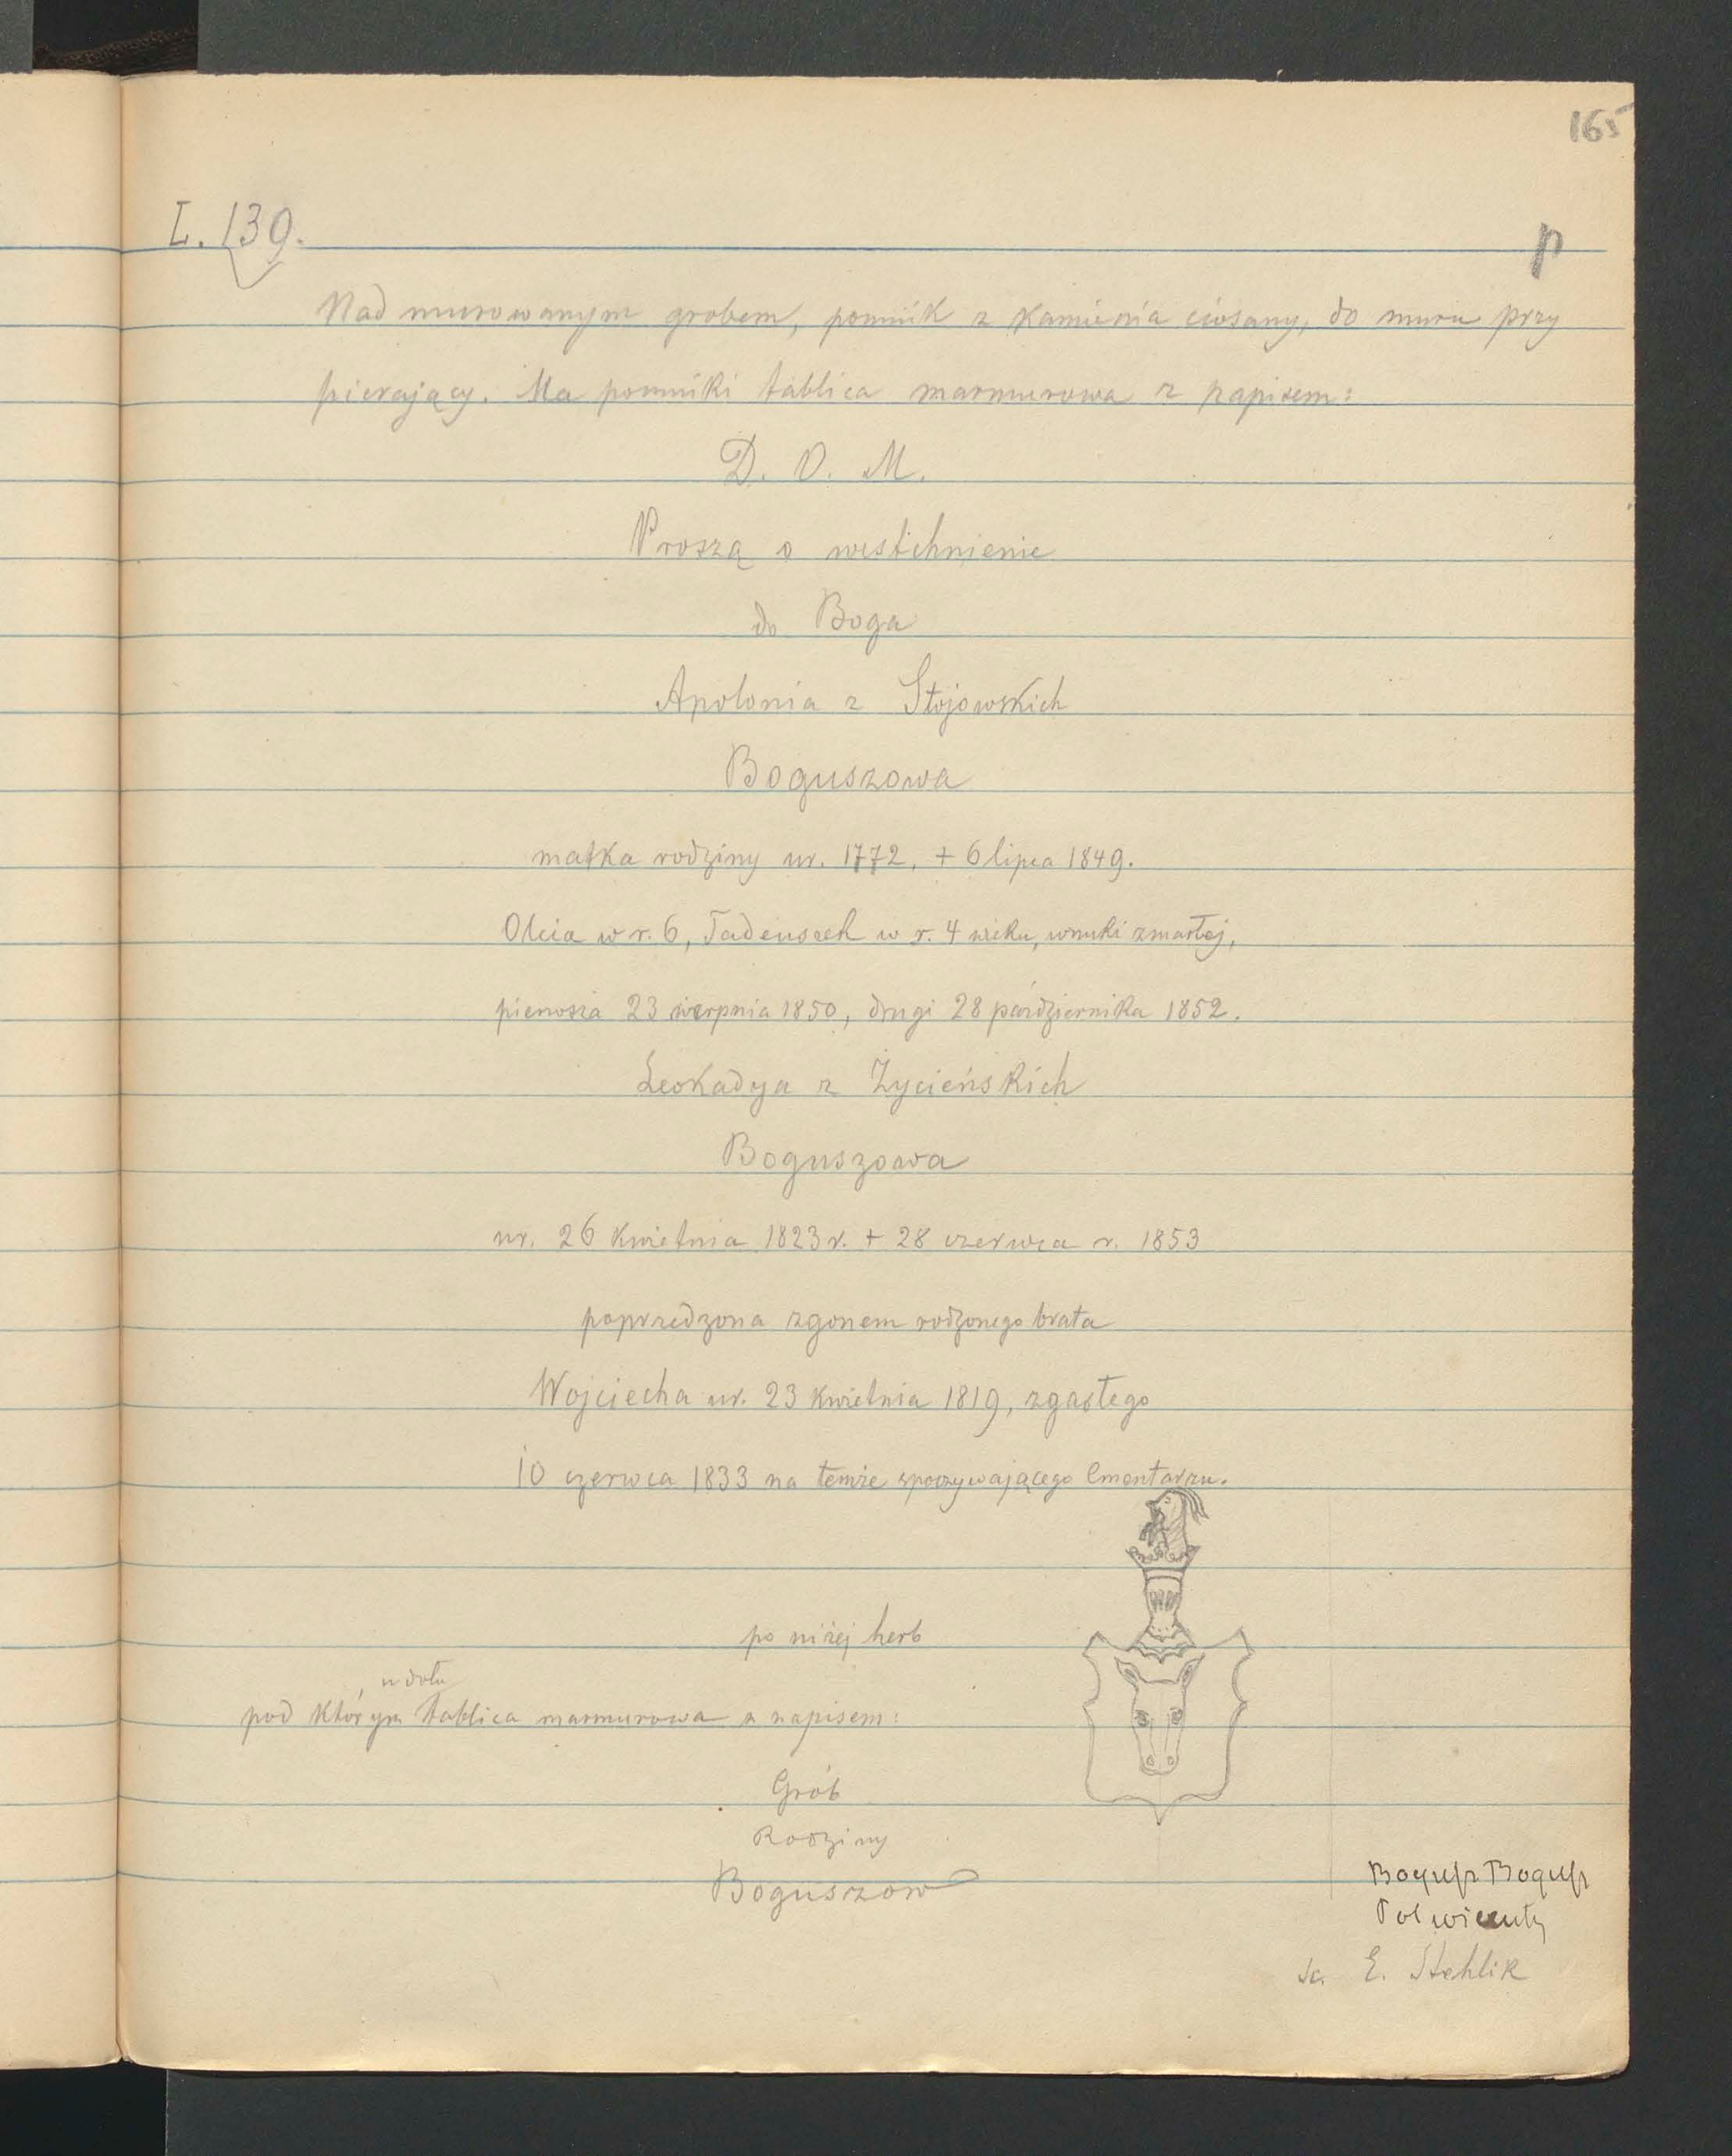 165
L. 139.
p
Nad murowanym grobem, pomnik z kamienia ciosany, do muru przy
pierający. Na pomniki tablica marmurowa z napisem:
D. O. M.
Proszą o westchnienie
do Boga
Apolonia z Stojowskich
Boguszowa
matka rodziny ur. 1772, + 6 lipca 1849.
Olcia w r. 6, Tadeuszek w r. 4 wieku, wnuki zmarłej,
pierwsza 23 sierpnia 1850, drugi 28 października 1852.
Leokadya z Życieńskich
Boguszowa
ur. 26 kwietnia 1823 r. + 28 czerwca r. 1853
poprzedzona zgonem rodzonego brata
Wojciecha ur. 23 kwietnia 1819, zgasłego
10 czerwca 1833 na temże spoczywającego Cmentarzu.
po niżej herb
u dołu
pod którym tablica marmurowa z napisem:
Grób
Rodziny
Boguszow
Bogusz Bogusz
sc. E. Stehlik